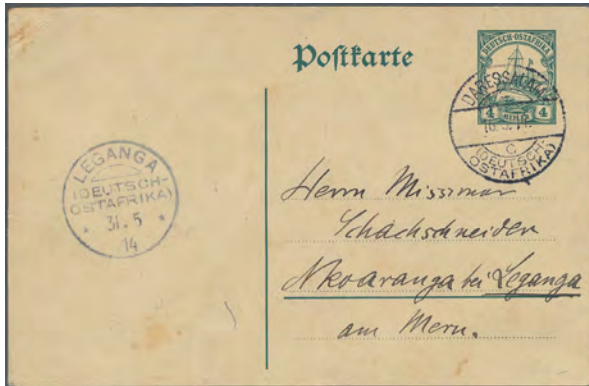 Postkarte
DEUTSCH-OSTAFRIKA
4 4
HELLER
DARESSALAM
C
(DEUTSCH-
OSTAFRIKA)
LEGANGA
(DEUTSCH-
OSTAFRIKA)
* 31.5 *
14
Herrn Missionar
Schachschneider
Nkoaranga bei Leganga
am Meru.